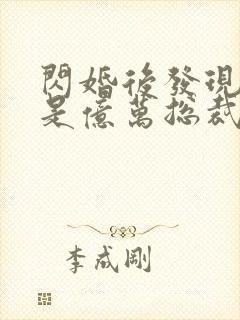 閃婚後發現
是億萬總裁
李成剛